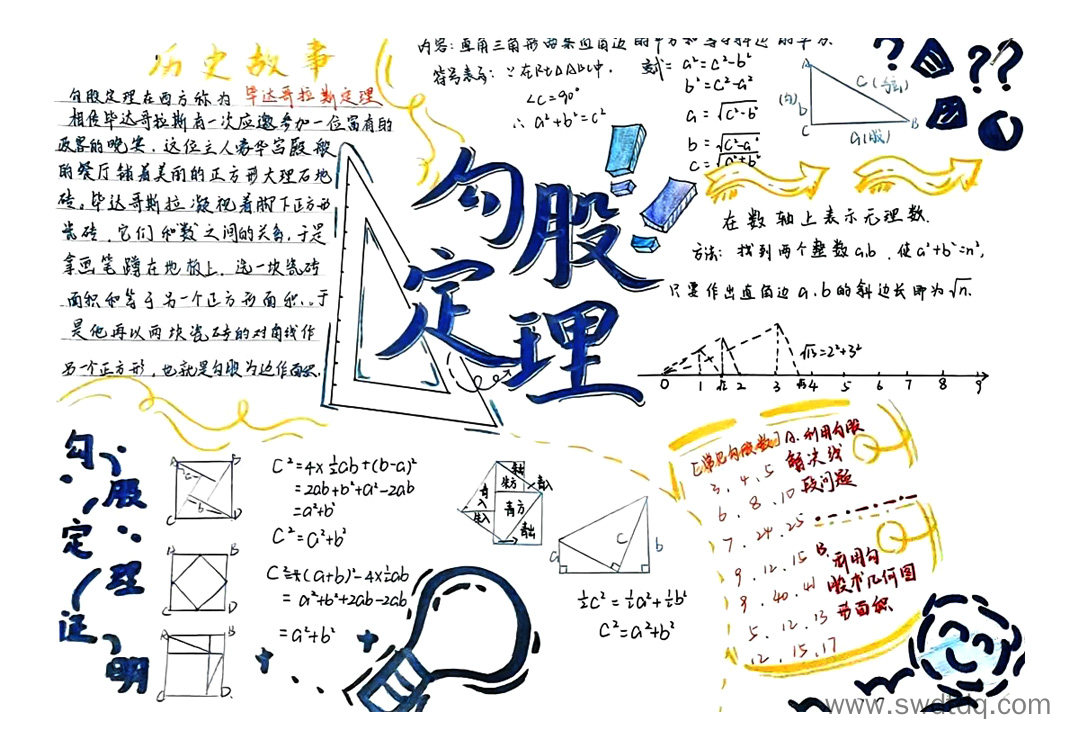 历史故事
勾股定理在西方称为 毕达哥拉斯定理
相传毕达哥拉斯有一次应邀参加一位富有的
政客的晚宴，这位主人豪华宫殿般
的餐厅铺着美丽的正方形大理石地
砖。毕达哥斯拉凝视着脚下正方形
瓷砖，它们和数之间的关系，于是
拿画笔蹲在地板上，选一块瓷砖
面积和等于另一个正方形面积。于
是他再以两块瓷砖的对角线作
另一个正方形，也就是勾股为边作面积.
内容：直角三角形两条直角边的平方和等于斜边的平方.
符号表示：∵在Rt△ABC中，
∠C=90°
∴ a²+b²=c²
变式= a²=c²-b²
b²=c²-a²
a = √c²-b²
b = √c²-a²
c = √a²+b²
A
C(弦)
(勾)
b
C
a(股)
B
? ??
勾股
定理
!!
在数轴上表示无理数.
方法：找到两个整数a.b，使a²+b²=n²,
只要作出直角边a.b的斜边长即为√n.
√13=2²+3²
0 1 √2 2 3 √13 4 5 6 7 8 9
勾股定理证明
A B
a
b
C D
C²=4×½ab+(b-a)²
=2ab+b²+a²-2ab
=a²+b²
C²=a²+b²
A B
C D
=(a+b)²-4×½ab
= a²+b²+2ab-2ab
=a²+b²
A B
C D.
朱方
青方
青出
a
C
b
½c²=½a²+½b²
C²=a²+b²
[常见勾股数]
3、4、5
6、8、10
7、24、25
9、12、15
9、40、41
5、12、13
12、15、17
A.利用勾股
解决线
段问题
B.
利用勾
股求几何图
形面积
www.swdtdq.com